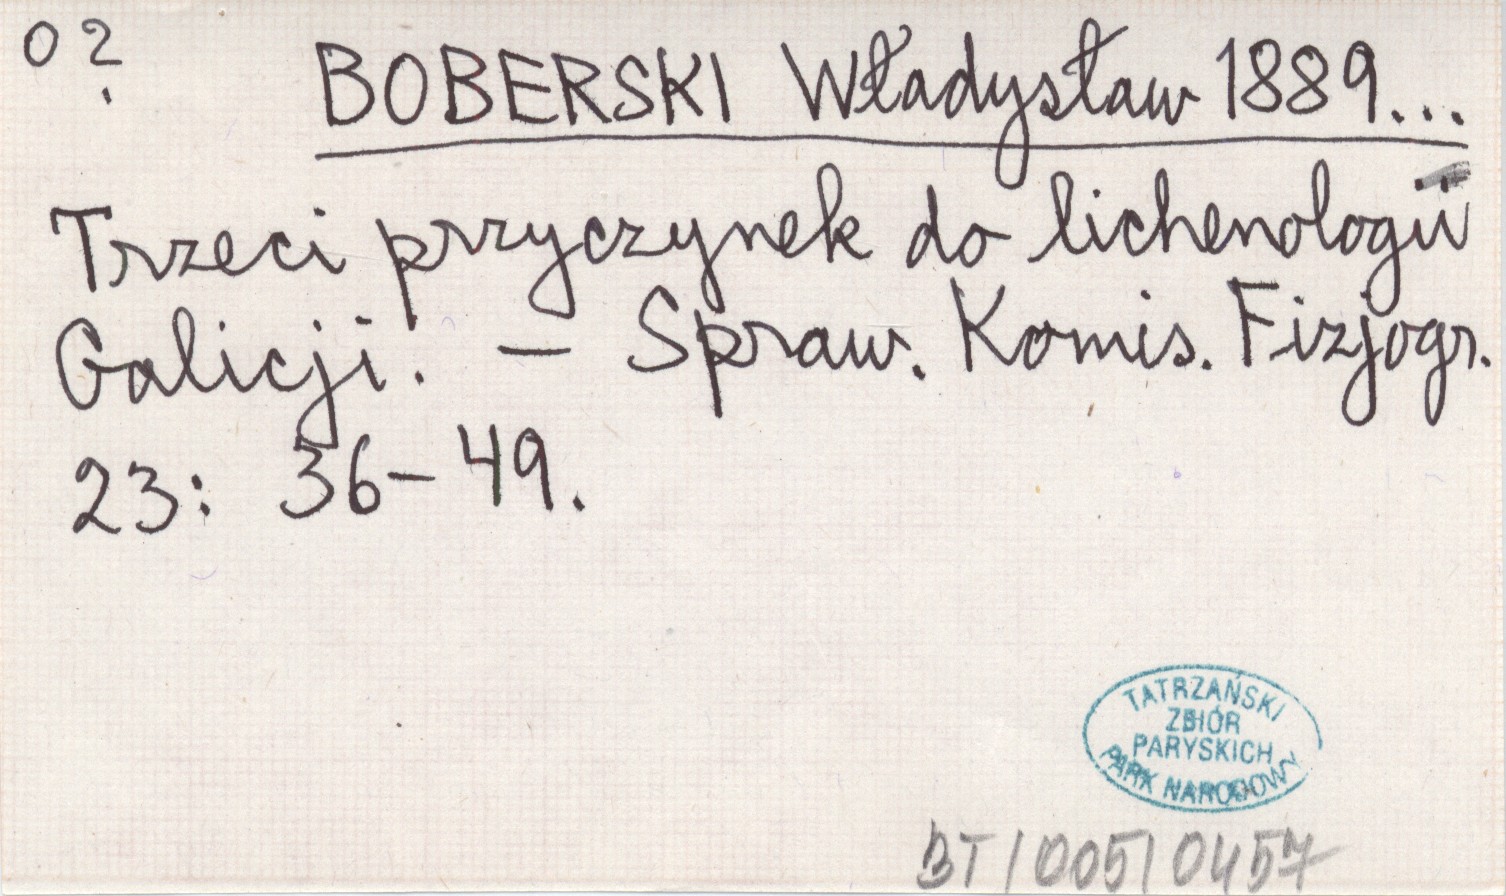 0 ?
BOBERSKI Władysław 1889...
Trzeci przyczynek do lichenologii
Galicji. – Spraw. Komis. Fizjogr.
23: 36–49.
TATRZAŃSKI
ZBIÓR
PARYSKICH
PARK NARODOWY
BT/005/0457